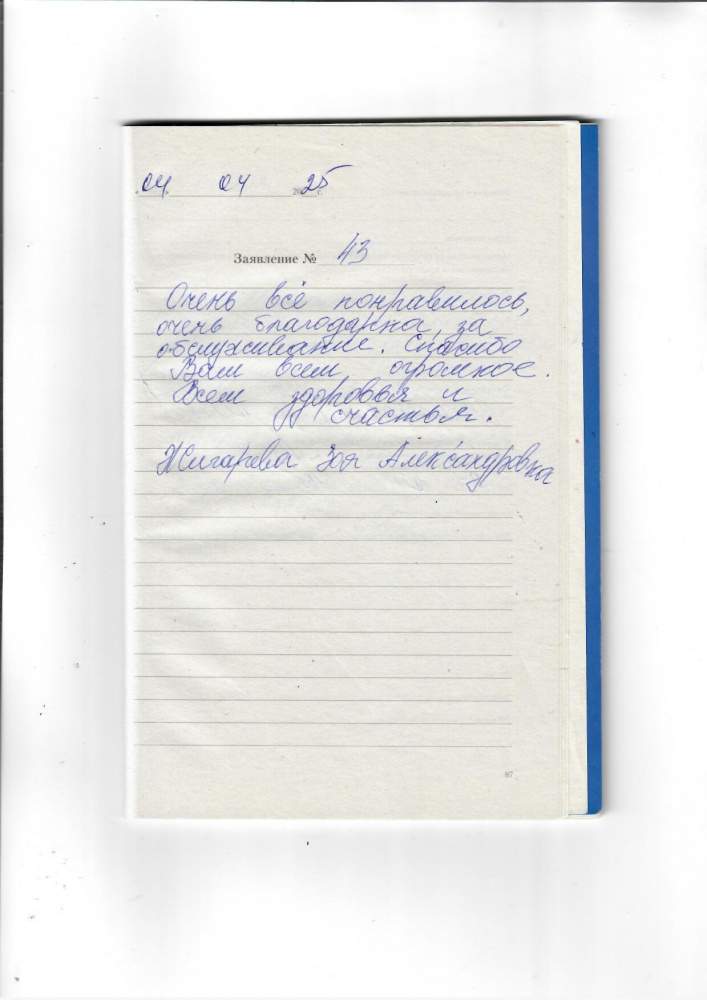 04 04 2025 г.
Заявление № 43
Очень всё понравилось,
очень благодарна за
обслуживание. Спасибо
Вам всем огромное.
Всем здоровья и
счастья.
Жигарева Зоя Александровна
87